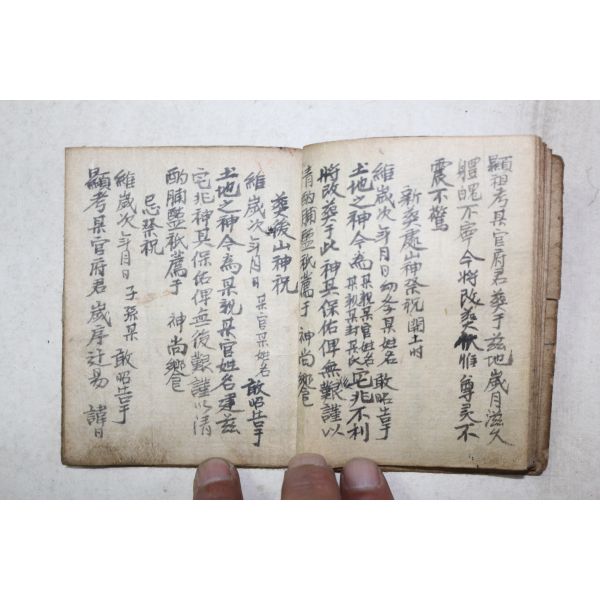 顯祖考某官府君葬于玆地歲月滋久
體魄不寧今將改葬伏惟尊灵不
震不驚
新葬處山神祭祝開土时
維歲次年月日幼孝某姓名敢昭告于
土地之神今為某親某官姓名某親某封某氏宅兆不利
將改葬于此神其保佑俾無艱謹以
清酌脯醢祇薦于神尚饗
葬後山神祝
維歲次年月日某官某姓名敢昭告于
土地之神今為某親某官姓名建玆
宅兆神其保佑俾無後艱謹以清
酌脯醢祇薦于神尚饗
忌祭祝
維歲次年月日子孫某敢昭告于
顯考某官府君歲序迁易諱日